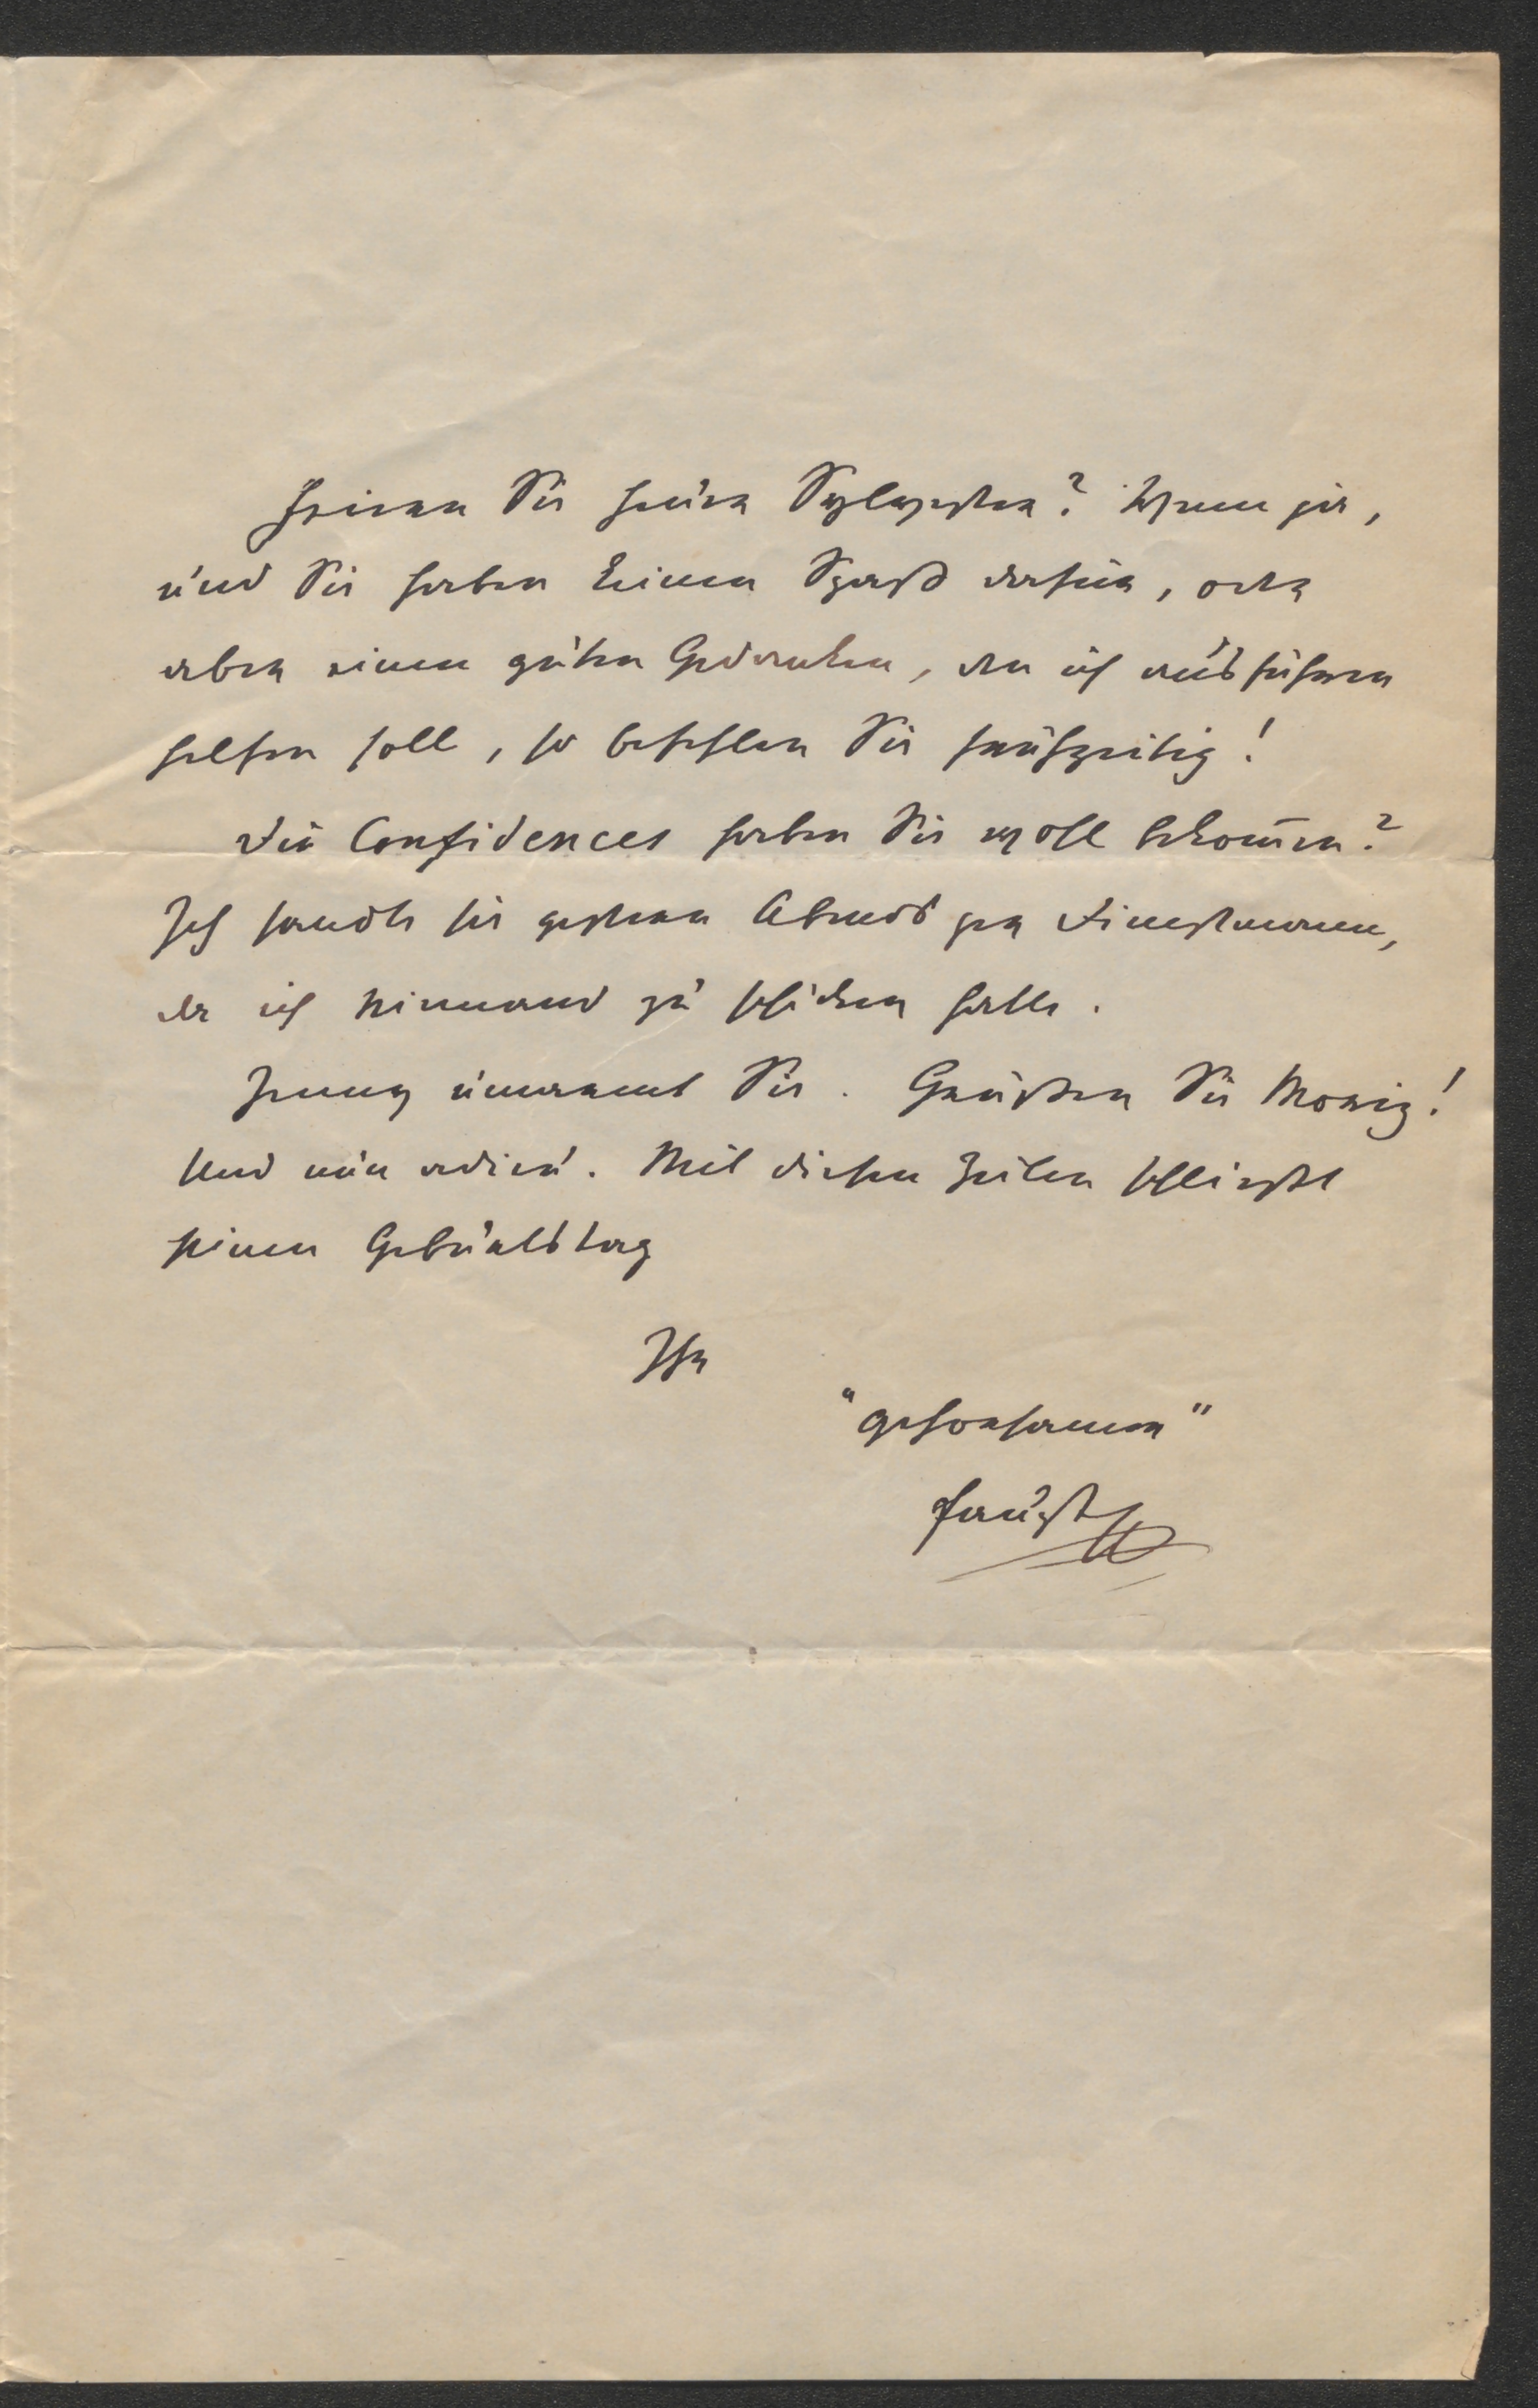 Feiern Sie heuer Sylvester? Wenn ja,
und Sie haben keinen Spaß dafür, oder
aber einen guten Gedanken, den ich ausführen
helfen soll, so befehlen Sie frühzeitig!
Die Confidences haben Sie wohl bekom̄en?
Ich sandte sie gestern Abends per Dienstmann,
da ich niemand zu schicken hatte.
Jenny umarmt Sie. Grüßen Sie Moriz!
Und nun adieu. Mit diesen Zeilen schließt
seinen Geburtstag
Ihr
"gehorsamer"
Faust